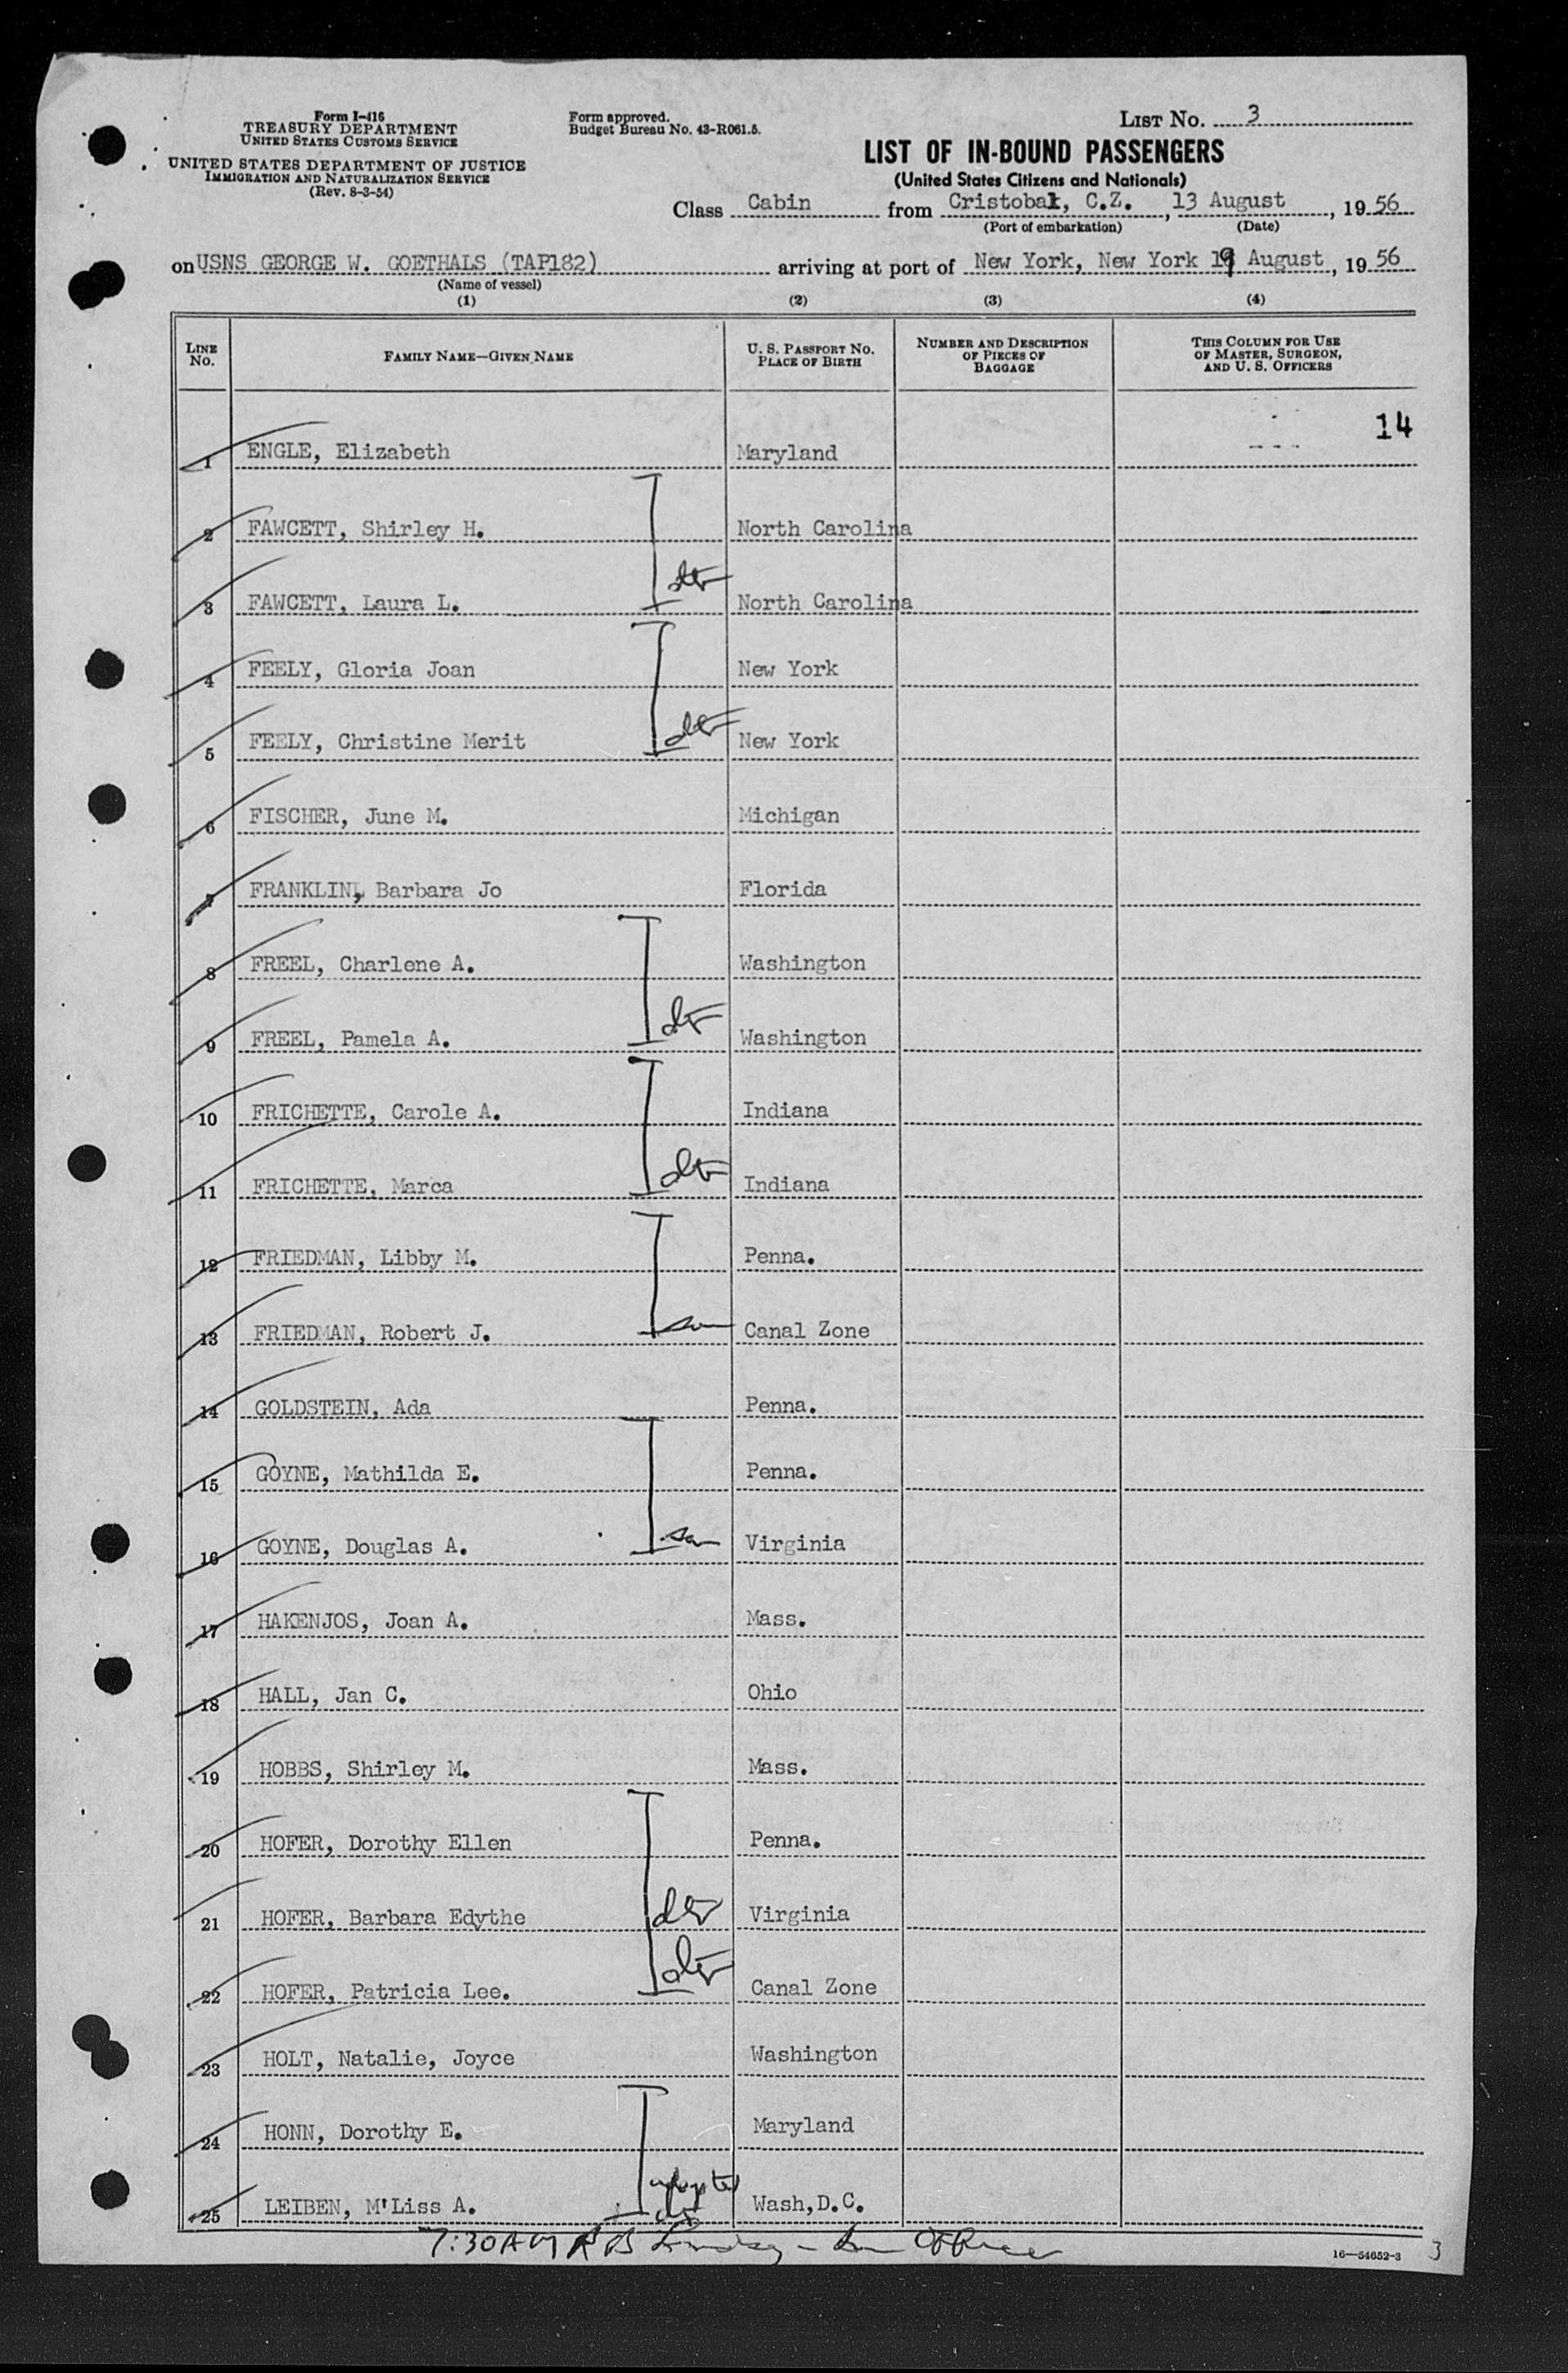 Form I-416
TREASURY DEPARTMENT
UNITED STATES CUSTOMS SERVICE
UNITED STATES DEPARTMENT OF JUSTICE
IMMIGRATION AND NATURALIZATION SERVICE
(Rev. 8-3-54)
Form approved.
Budget Bureau No. 43-R061.5.
LIST NO. 3
LIST OF IN-BOUND PASSENGERS
(United States Citizens and Nationals)
Class Cabin from Cristobal, C.Z., 13 August, 19 56
(Port of embarkation) (Date)
on USNS GEORGE W. GOETHALS (TAP182) arriving at port of New York, New York 19 August, 19 56
(Name of vessel)
(1) (2) (3) (4)
LINE NO. FAMILY NAME—GIVEN NAME U. S. PASSPORT NO. PLACE OF BIRTH NUMBER AND DESCRIPTION OF PIECES OF BAGGAGE THIS COLUMN FOR USE OF MASTER, SURGEON, AND U. S. OFFICERS
14
1 ENGLE, Elizabeth Maryland
2 FAWCETT, Shirley H. North Carolina
3 FAWCETT, Laura L. dtr North Carolina
4 FEELY, Gloria Joan New York
5 FEELY, Christine Merit dtr New York
6 FISCHER, June M. Michigan
7 FRANKLIN, Barbara Jo Florida
8 FREEL, Charlene A. Washington
9 FREEL, Pamela A. dtr Washington
10 FRICHETTE, Carole A. Indiana
11 FRICHETTE, Marca dtr Indiana
12 FRIEDMAN, Libby M. Penna.
13 FRIEDMAN, Robert J. son Canal Zone
14 GOLDSTEIN, Ada Penna.
15 GOYNE, Mathilda E. Penna.
16 GOYNE, Douglas A. son Virginia
17 HAKENJOS, Joan A. Mass.
18 HALL, Jan C. Ohio
19 HOBBS, Shirley M. Mass.
20 HOFER, Dorothy Ellen Penna.
21 HOFER, Barbara Edythe dtr Virginia
22 HOFER, Patricia Lee. dtr Canal Zone
23 HOLT, Natalie, Joyce Washington
24 HONN, Dorothy E. Maryland
25 LEIBEN, M'Liss A. adopted dtr Wash,D.C.
7:30AM Office
16—54652-3 3